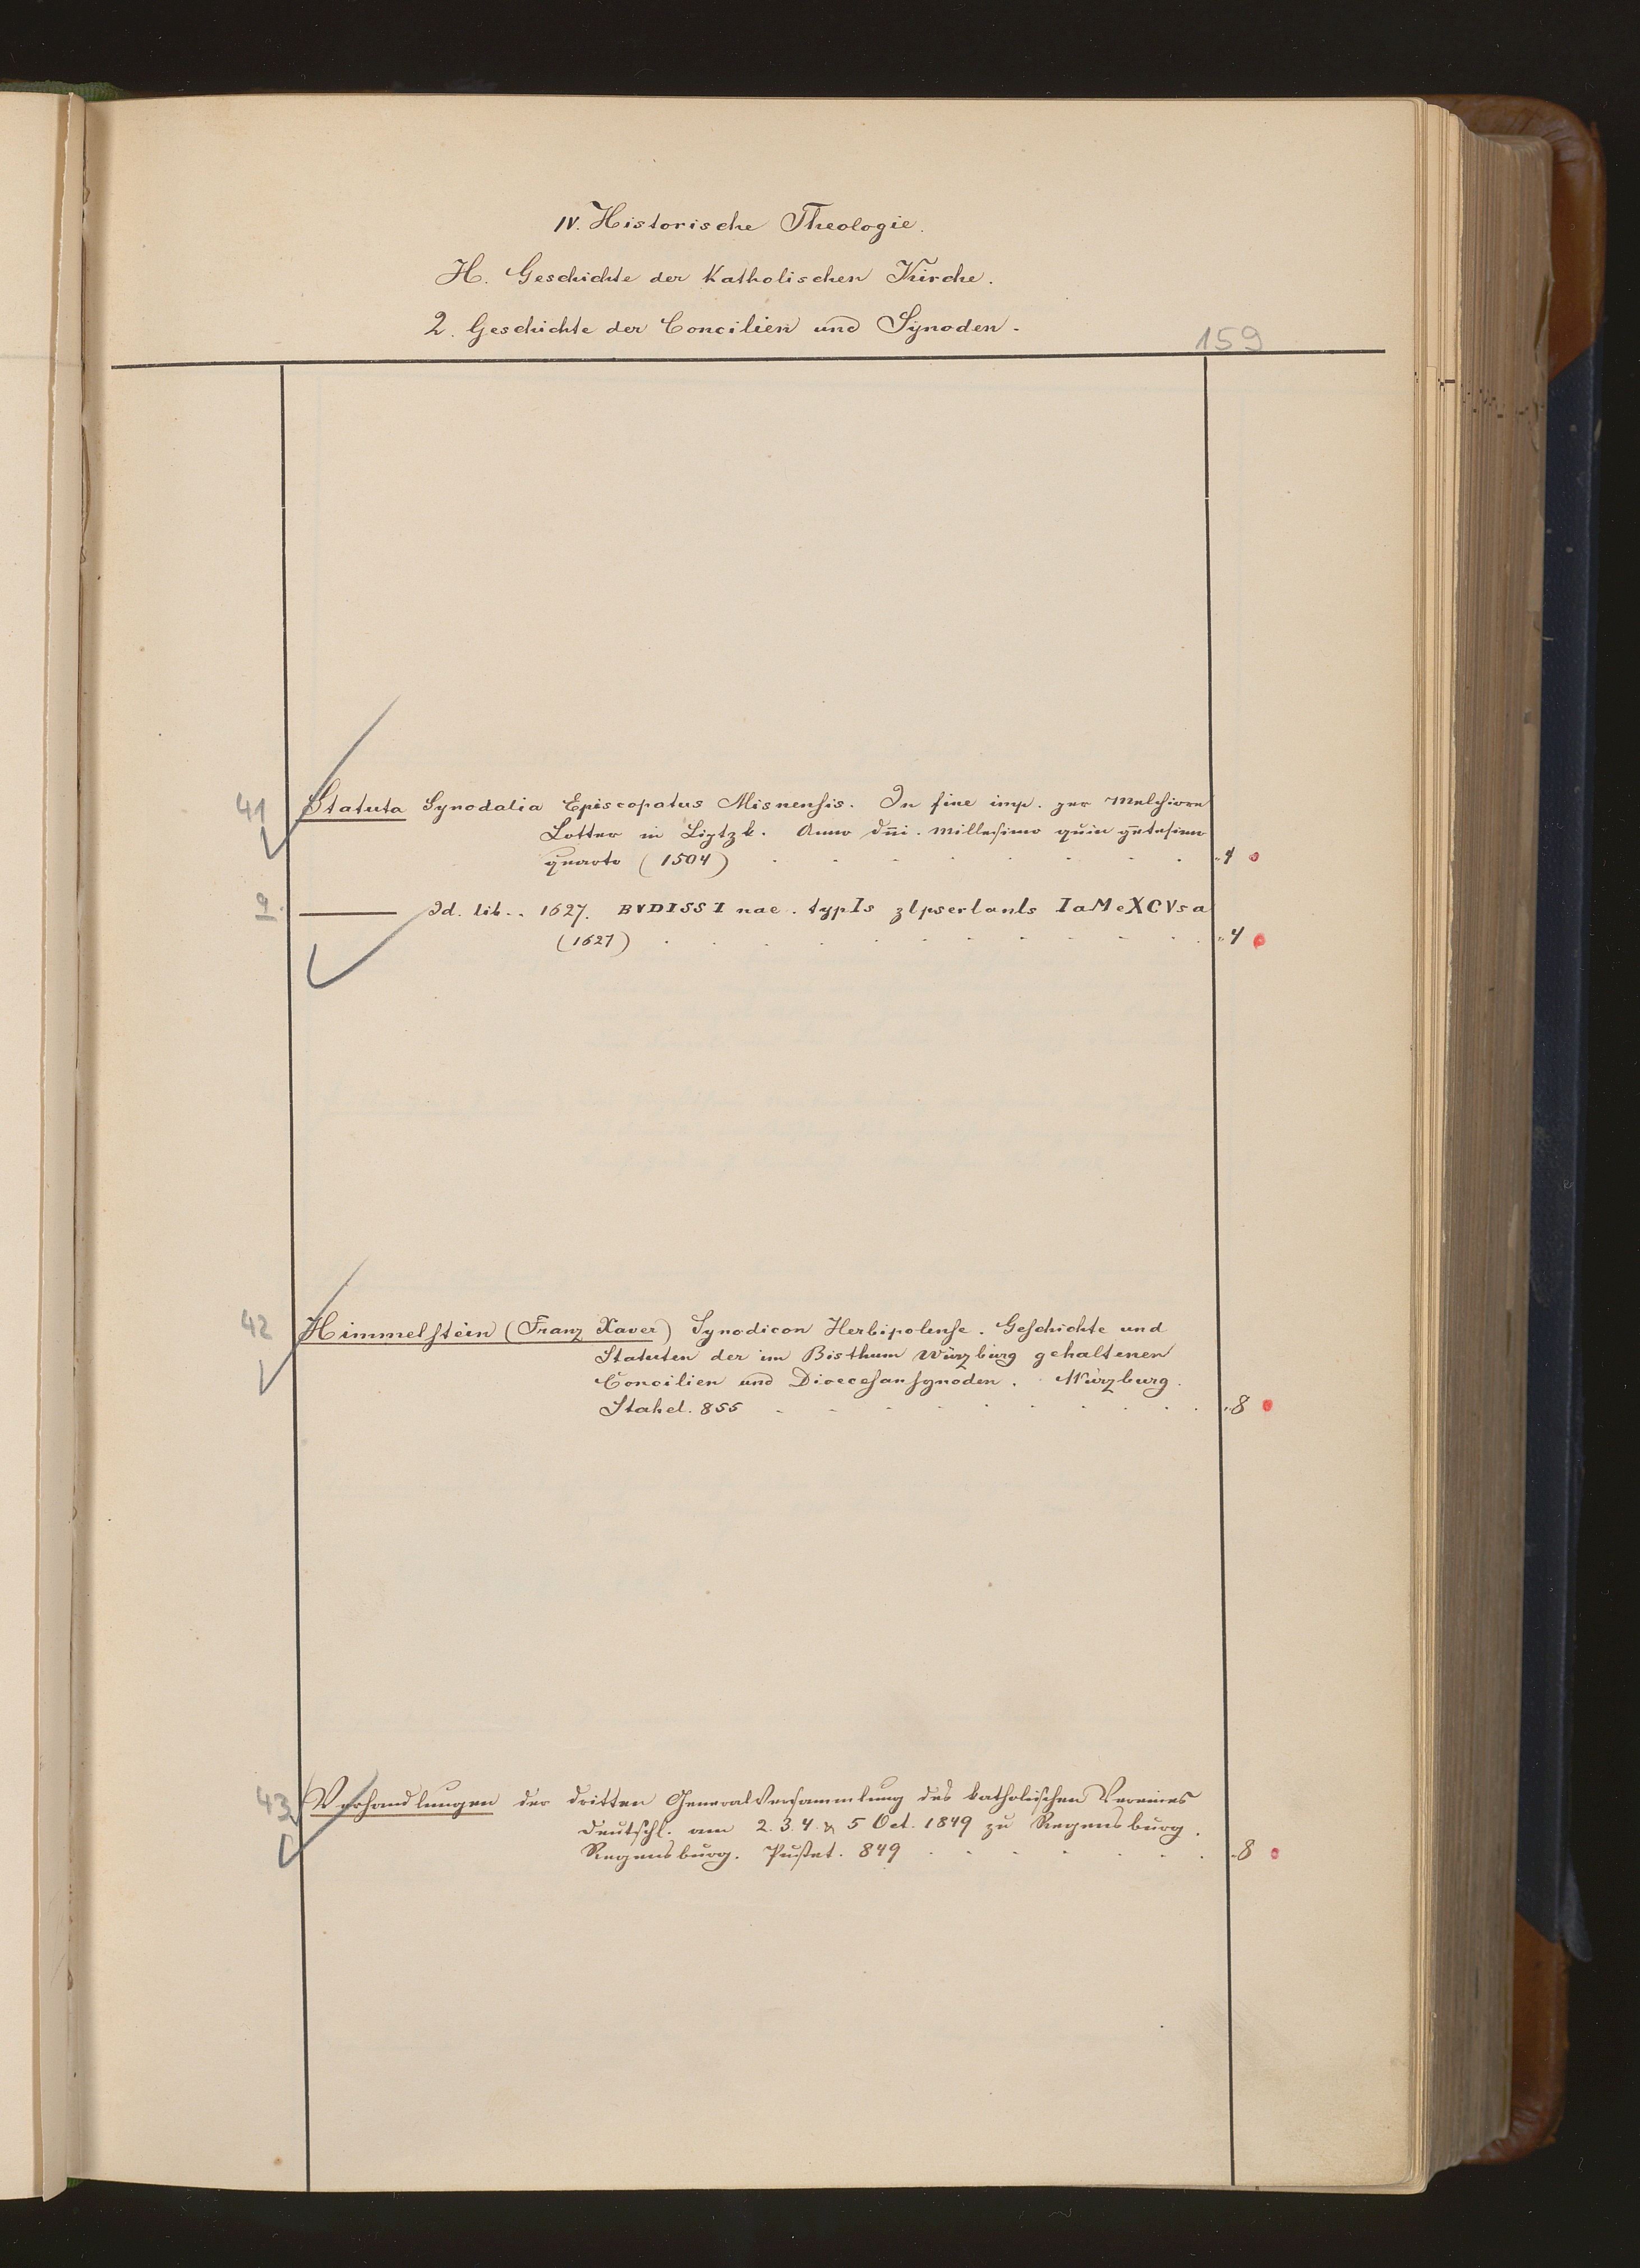 IV. Historische Theologie.
H. Geschichte der Katholischen Kirche.
2. Geschichte der Concilien und Synoden.
159
41 Statuta Synodalia Episcopatus Misnensis. In fine imp. per Melchiorn
Lotter in Liptzk. Anno dn̄i. Millesimo quin gētesimo
quarto (1504) 4
9. Id. lib.. 1627. BVDISSInae. typIs zIpserIanIs IaMeXCVsa
(1627) 4
42 Himmelstein (Franz Xaver) Synodicon Herbipolense. Geschichte und
Statuten der im Bisthum Würzburg gehaltenen
Concilien und Dioecesansynoden. Würzburg.
Stahel. 855 8
43 Verhandlungen der dritten Generalversammlung des katholischen Vereines
Deutschl. am 2. 3. 4. & 5 Oct. 1849 zu Regensburg.
Regensburg. Pustet. 849 8